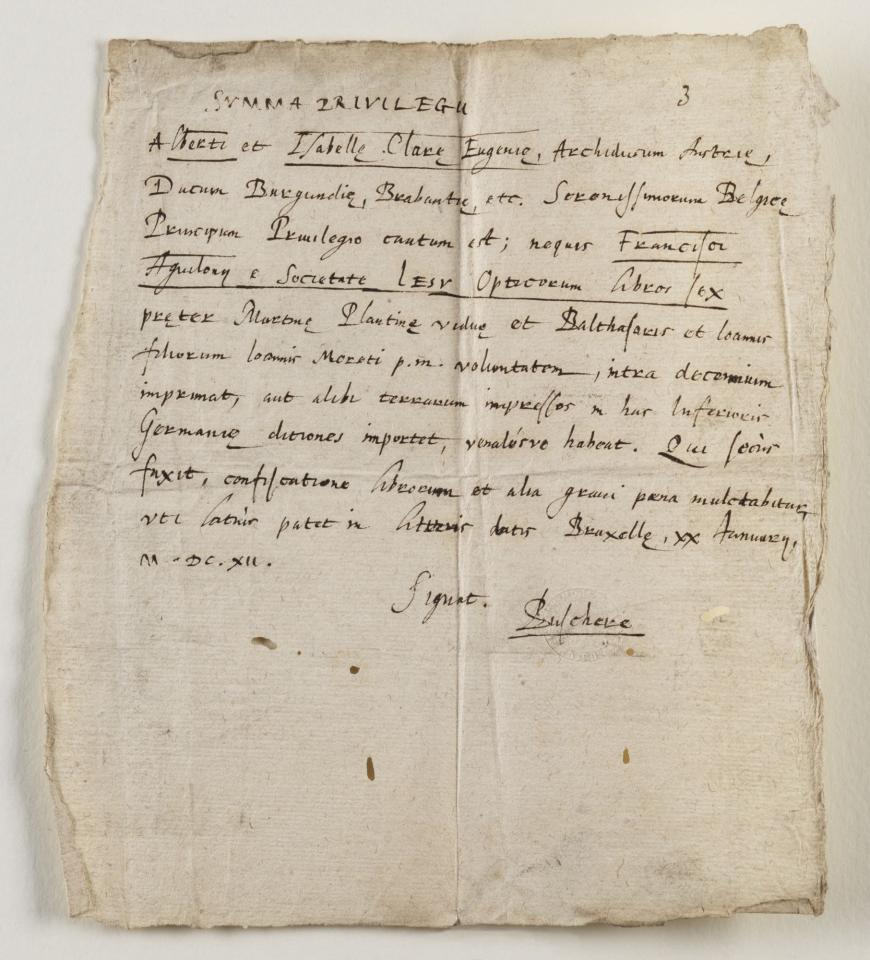 SVMMA PRIVILEGII
3
Alberti et Isabellę Clarę Eugenię, Archiducum Austrię,
Ducum Burgundię, Brabantię, etc. Serenissimorum Belgicę
Principum Priuilegio cautum est; nequis Francisci
Aguilonij e Societate Iesv Opticorum libros sex
pręter Martinę Plantinę viduę et Balthasaris et Ioannis
filiorum Ioannis Moreti p.m. voluntatem, intra decennium
imprimat, aut alibi terrarum impressos in has Inferioris
Germanię ditiones importet, venalésve habeat. Qui secùs
faxit, confiscatione librorum et alia graui pœna mulctabitur,
vti latiùs patet in litteris datis Bruxellę, xx Ianuarij,
M.DC.XII.
Signat.
Buschere